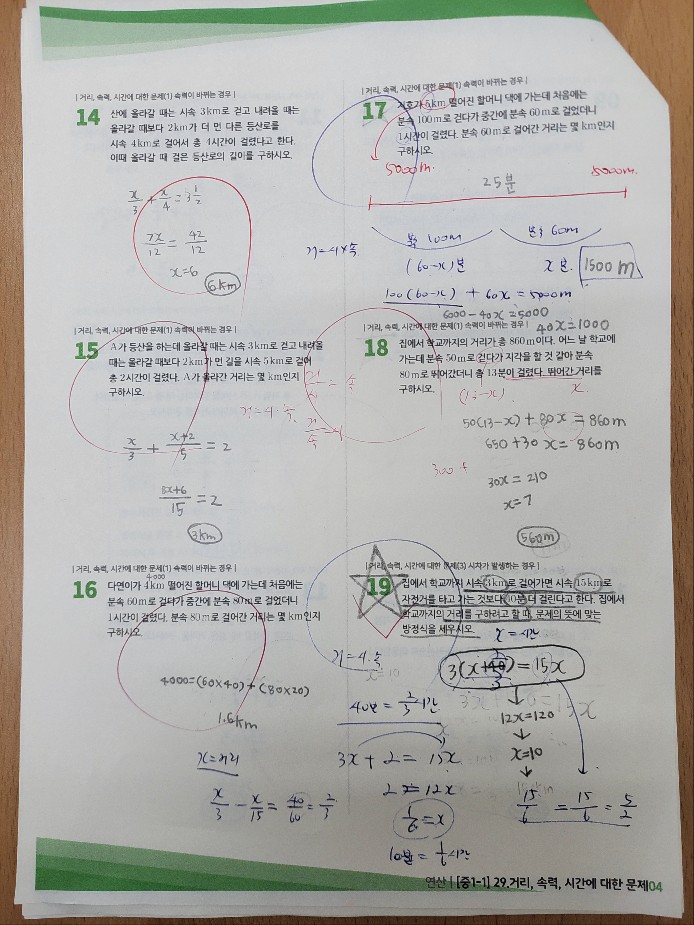 | 거리, 속력, 시간에 대한 문제(1) 속력이 바뀌는 경우 |
14 산에 올라갈 때는 시속 3km로 걷고 내려올 때는
올라갈 때보다 2km가 더 먼 다른 등산로를
시속 4km로 걸어서 총 4시간이 걸렸다고 한다.
이때 올라갈 때 걸은 등산로의 길이를 구하시오.
x/3 + x/4 = 3 1/2
7x/12 = 42/12
x=6
6km
| 거리, 속력, 시간에 대한 문제(1) 속력이 바뀌는 경우 |
15 A가 등산을 하는데 올라갈 때는 시속 3km로 걷고 내려올
때는 올라갈 때보다 2km가 먼 길을 시속 5km로 걸어
총 2시간이 걸렸다. A가 올라간 거리는 몇 km인지
구하시오.
x/3 + x+2/5 = 2
8x+6/15 = 2
3km
| 거리, 속력, 시간에 대한 문제(1) 속력이 바뀌는 경우 |
4000
16 다연이가 4km 떨어진 할머니 댁에 가는데 처음에는
분속 60m로 걷다가 중간에 분속 80m로 걸었더니
1시간이 걸렸다. 분속 80m로 걸어간 거리는 몇 km인지
구하시오.
4000=(60×40)+(80×20)
1.6km
x=거리
x/3 - x/15 = 40/60 = 2/3
| 거리, 속력, 시간에 대한 문제(1) 속력이 바뀌는 경우 |
17 지호가 5km 떨어진 할머니 댁에 가는데 처음에는
분속 100m로 걷다가 중간에 분속 60m로 걸었더니
1시간이 걸렸다. 분속 60m로 걸어간 거리는 몇 km인지
구하시오.
5000m.
25분
5000m.
분속 100m
분속 60m
거=시×속
(60-x)분
x분.
1500m
100(60-x) + 60x = 5000m
6000-40x=5000
40x=1000
| 거리, 속력, 시간에 대한 문제(1) 속력이 바뀌는 경우 |
18 집에서 학교까지의 거리가 총 860m이다. 어느 날 학교에
가는데 분속 50m로 걷다가 지각을 할 것 같아 분속
80m로 뛰어갔더니 총 13분이 걸렸다. 뛰어간 거리를
구하시오.
거/시 = 속
거=시·속.
거/속 = 시
(13-x)
x.
50(13-x) + 80x = 860m
650+30x=860m
300+
30x=210
x=7
560m
| 거리, 속력, 시간에 대한 문제(3) 시차가 발생하는 경우 |
19 집에서 학교까지 시속 3km로 걸어가면 시속 15km로
자전거를 타고 가는 것보다 40분 더 걸린다고 한다. 집에서
학교까지의 거리를 구하려고 할 때, 문제의 뜻에 맞는
방정식을 세우시오.
x=시간
거=시·속
x=10
3(x+2/3)=15x
40분 = 2/3시간
12x=120
3x+2 = 15x
x=10
2=12x
1/6=x
15/6 = 15/6 = 5/2
10분=1/6시간
연산 | [중1-1] 29.거리, 속력, 시간에 대한 문제04